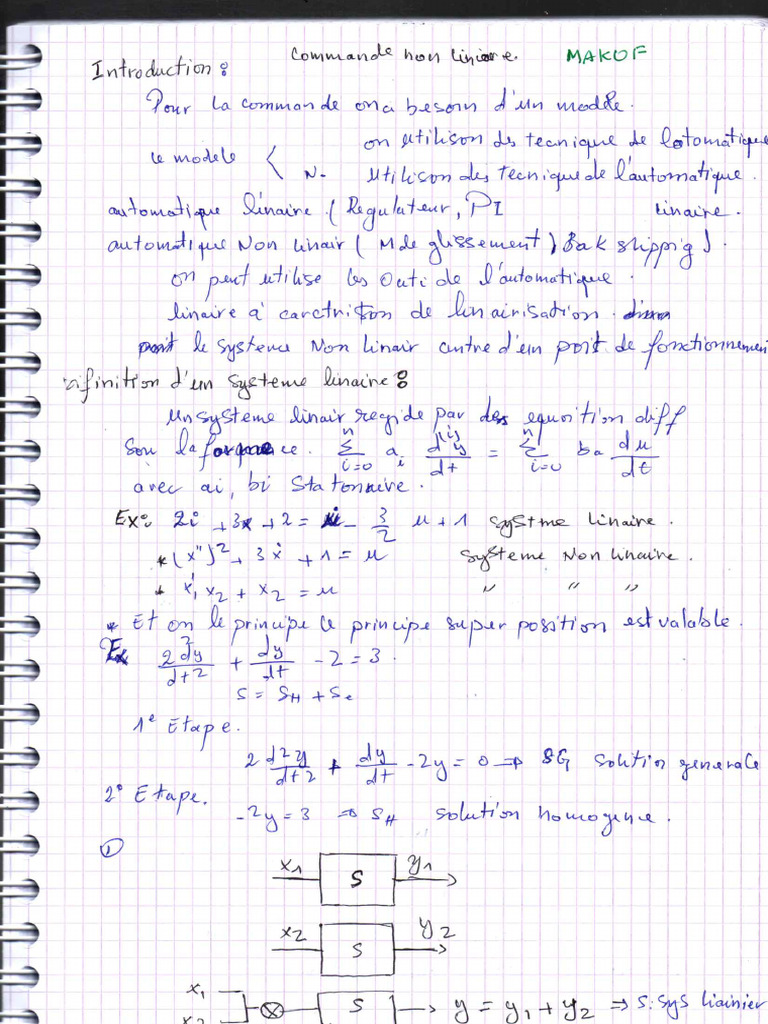 Commande non liniare. MAKOF
Introduction:
Pour la commande on a besoin d'un modéle.
on utilison des tecnique de lotomatique
le modele <
N- utilison des tecnique de l'automatique.
automatique linaire. (Regulateur, PI linaire.
automatique Non linair (M de glissement) Bak stippig).
on peut utilise les outi de l'automatique.
linaire à carctrison de linairisation.
le systeme Non linair antre d'un point de fonctionnemen
difinition d'un systeme linaire:
un systeme linair regide par des equoition diff
Son la ce. \sum_{i=0}^{n} a_i \frac{d^{(i)}y}{dt} = \sum_{i=0}^{n} ba \frac{du}{dt}
avec ai, bi Statonnire.
Ex: 2i + 3x + 2 = - \frac{3}{2} u + 1 systme linaire.
* (x")² + 3x + 1 = u systeme Non linaire.
* x'_1 x_2 + x_2 = u " " "
* Et on le principe ce principe super position est valable.
Ex \frac{2d^2y}{dt^2} + \frac{dy}{dt} - 2 = 3.
S = S_H + S_e
1^e Etape.
2 \frac{d2y}{dt2} + \frac{dy}{dt} - 2y = 0 ⇒ SG solution generale
2° Etape.
-2y = 3 ⇒ S_H solution homogene.
①
x1 S y1
x2 S y2
x_1
x2 ⊗ S y = y_1 + y_2 ⇒ S: sys liainier